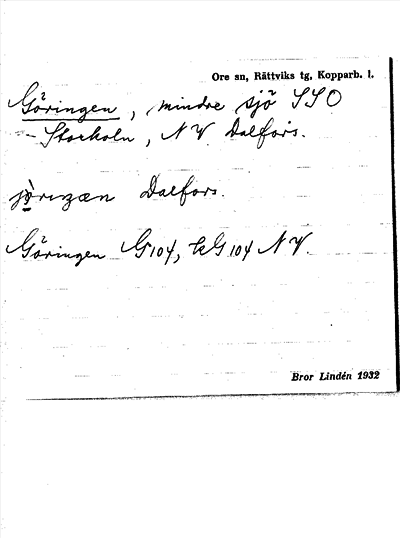 Ore sn, Rättviks tg, Kopparb. l.
Göringen, mindre sjö SSO
Storholn, NV Dalfors.
Dalfors.
Göringen G104, kG104 NV.
Bror Lindén 1932